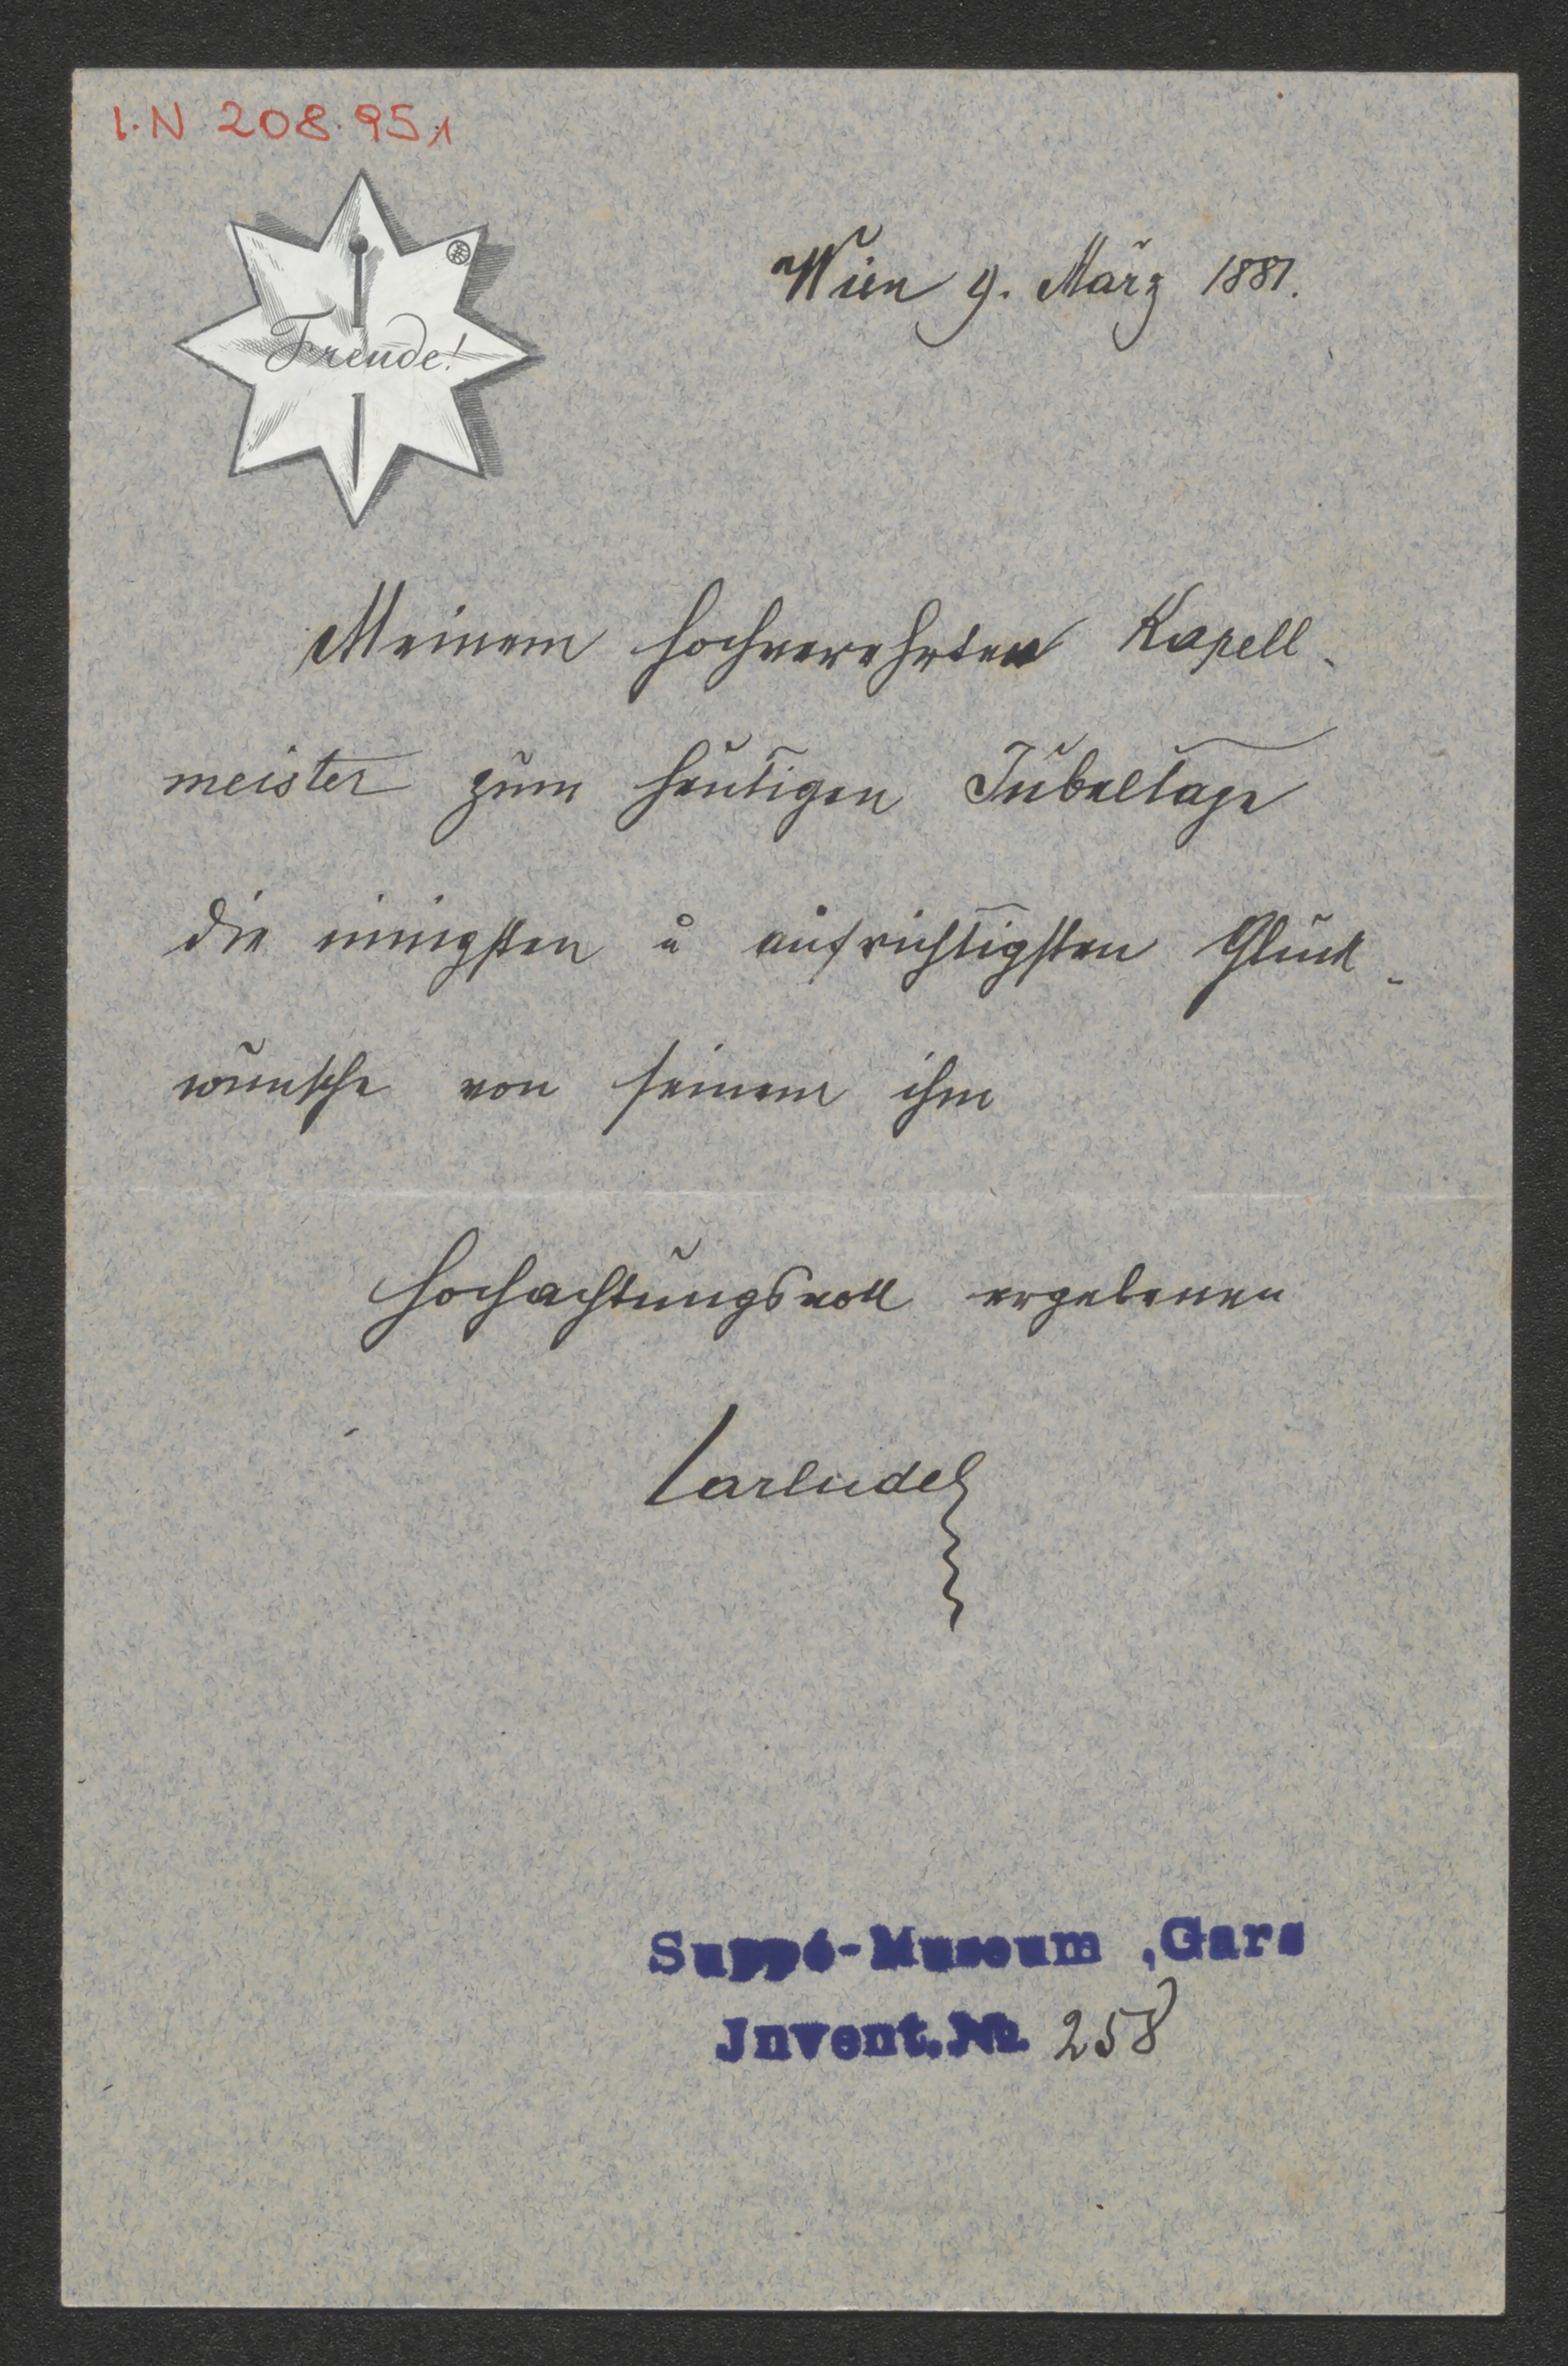 I.N 208.951
Freude!
Wien 9. März 1881.
Meinem hochverehrten Kapell-
meister zum heutigen Jubeltage
die innigsten u aufrichtigsten Glück-
wünsche von seinem ihm
hochachtungsvoll ergebenen
Carludel
Suppé-Museum, Gars
Invent.Nr. 258